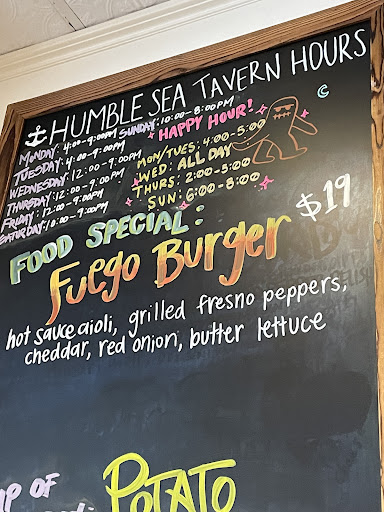 HUMBLE SEA TAVERN HOURS
MONDAY: 4:00-9:00PM
TUESDAY: 4:00-9:00PM
WEDNESDAY: 12:00-9:00PM
THURSDAY: 12:00-9:00PM
FRIDAY: 12:00-9:00PM
SATURDAY: 10:00-9:00PM
SUNDAY: 10:00-8:00PM
HAPPY HOUR!
MON/TUES: 4:00-5:00
WED: ALL DAY
THURS: 2:00-5:00
SUN: 6:00-8:00
FOOD SPECIAL:
Fuego Burger $19
hot sauce aioli, grilled fresno peppers,
cheddar, red onion, butter lettuce
OF
POTATO